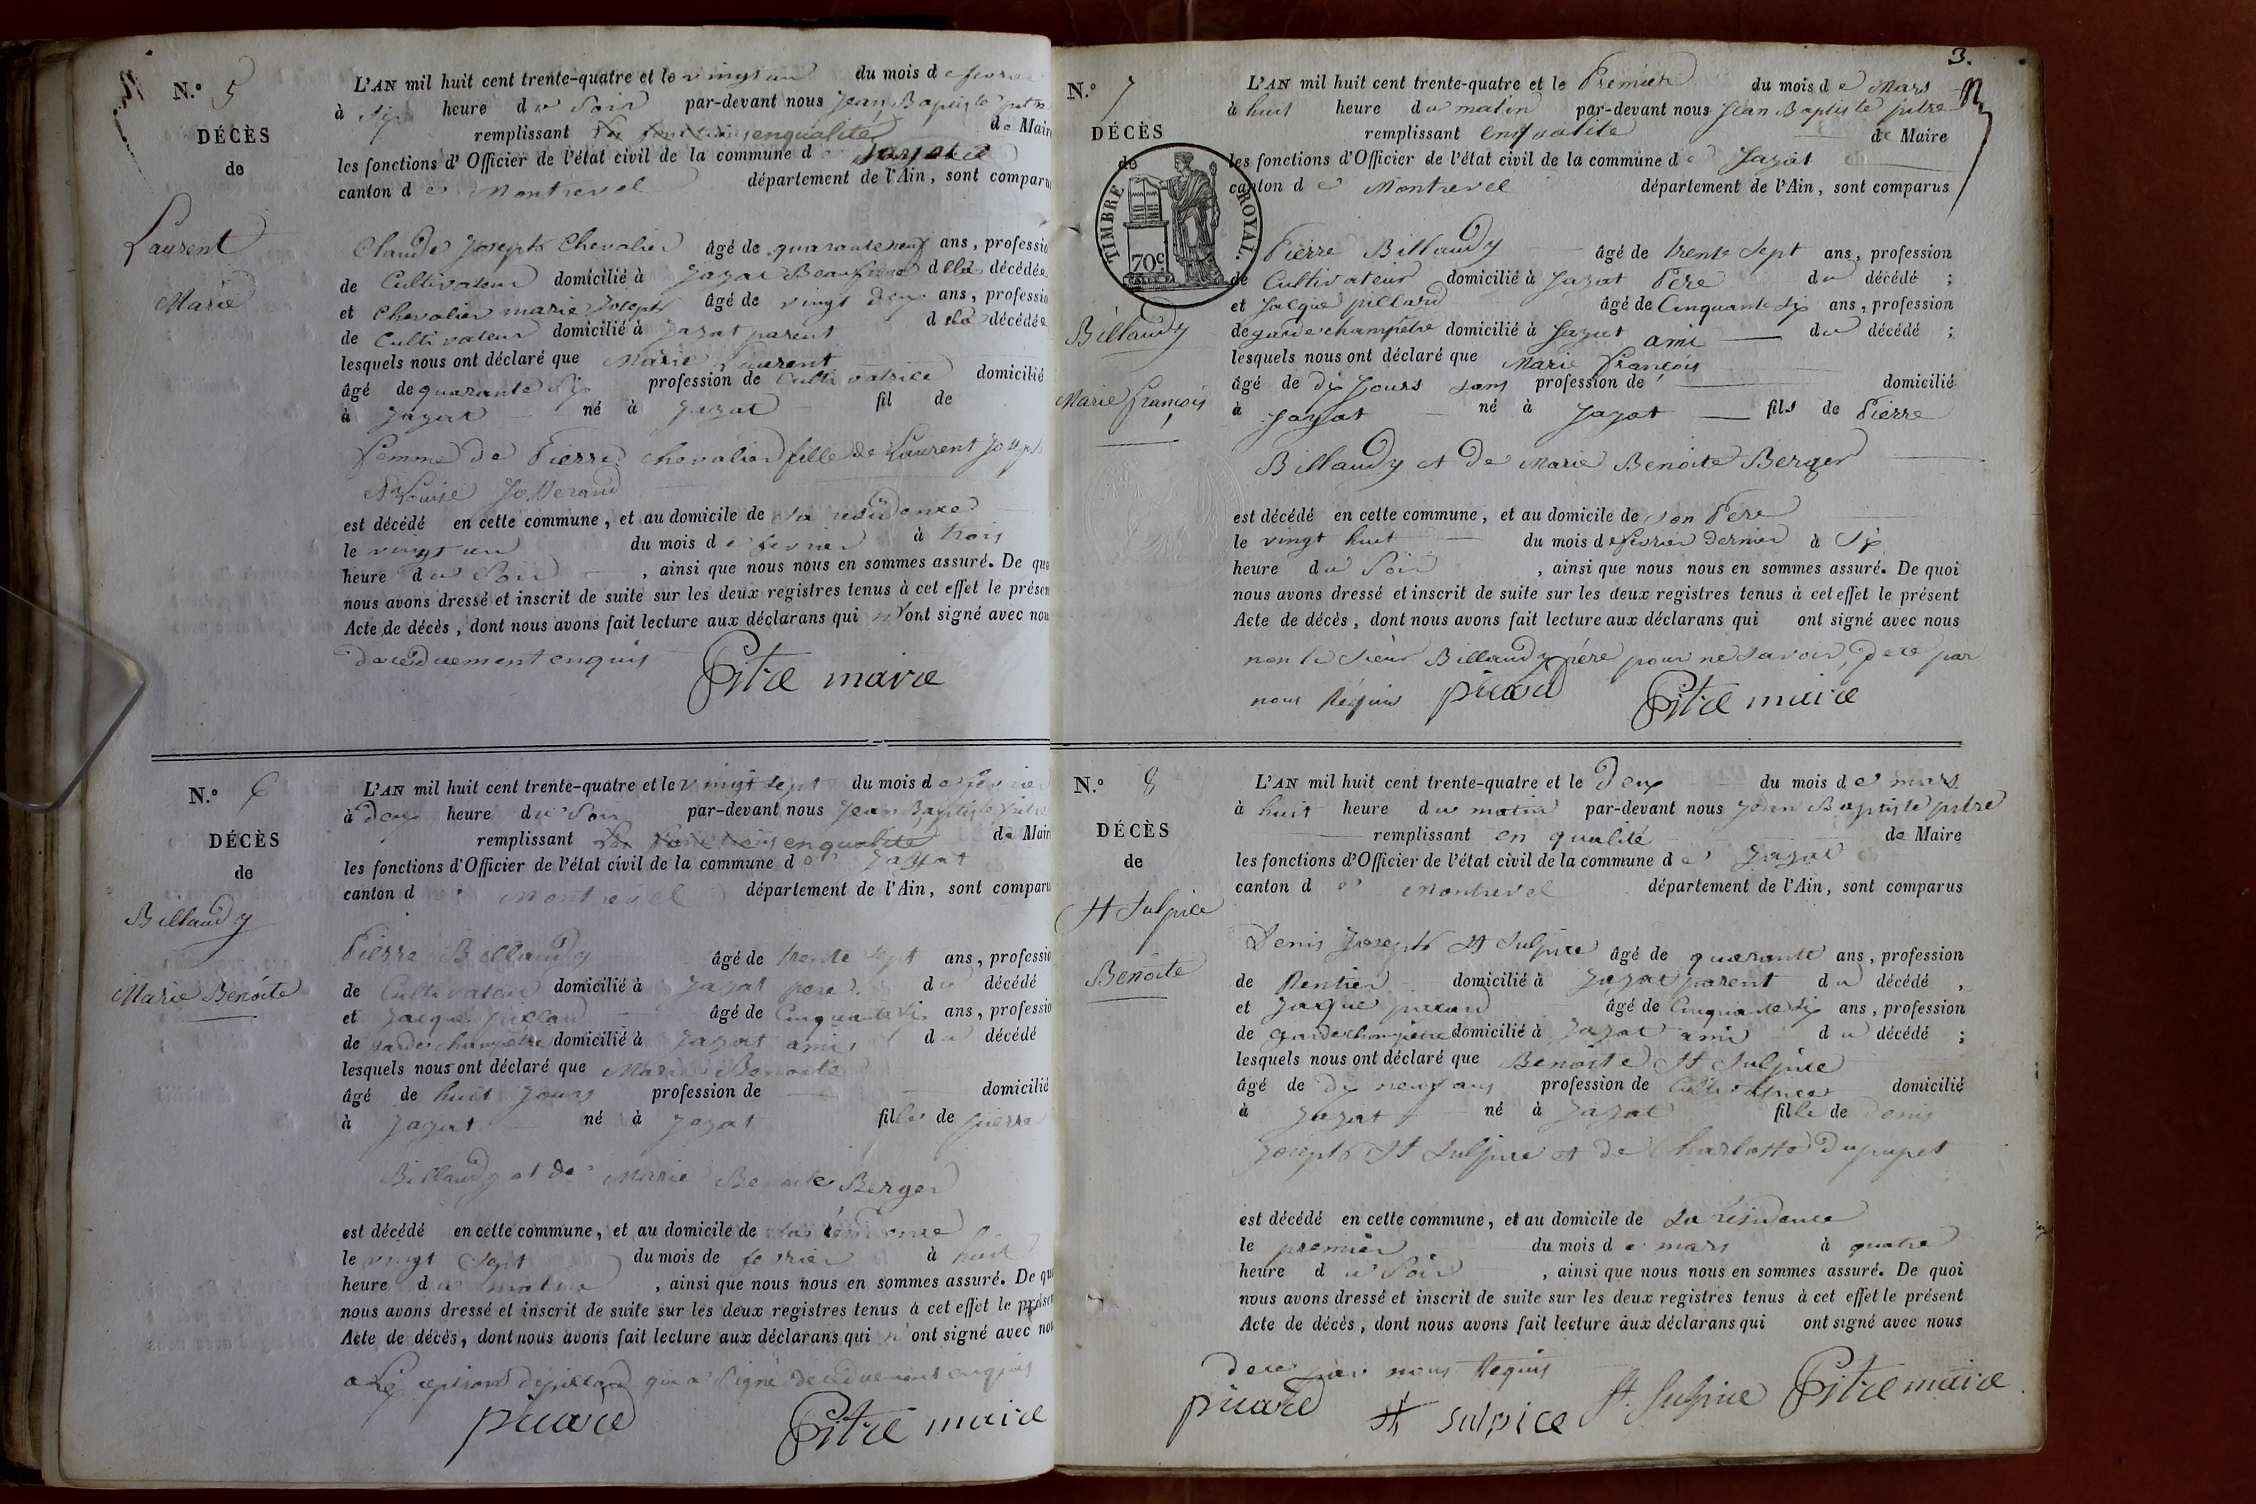 N.º 5
DÉCÈS
de
Laurent
Marie
L'AN mil huit cent trente-quatre et le vingt un du mois de fevrier
à six heure du Soir par-devant nous Jean Baptiste pitre
remplissant les fonctions enqualité de Maire
les fonctions d'Officier de l'état civil de la commune de Jayat
canton de Montrevel département de l'Ain, sont comparus
Claude Joseph Chevalier âgé de quarante neuf ans, professio
de Cultivateur domicilié à Jayat Beaufrere d lla décédée
et Chevalier marie Joseph âgé de vingt deux ans, professio
de Cultivateur domicilié à Jayat parent d ela décédée
lesquels nous ont déclaré que Marie Laurent
âgé de quarante six profession de Cultivatrice domicilié
à Jayat né à Jayat fil de
femme de Pierre Chevalier fille de Laurent Joseph
& Louise Josserand
est décédé en cette commune, et au domicile de sa residence
le vingt un du mois de fevrier à trois
heure du Soir, ainsi que nous nous en sommes assuré. De quo
nous avons dressé et inscrit de suite sur les deux registres tenus à cet effet le présen
Acte de décès, dont nous avons fait lecture aux déclarans qui n'ont signé avec nou
de ce duement enquis
Pitre maire
N.º 6
DÉCÈS
de
Billaudy
Marie Benoite
L'AN mil huit cent trente-quatre et le vingt sept du mois de fevrier
à deux heure du Soir par-devant nous Jean Baptiste Pitre
remplissant les fonctions enqualité de Mair
les fonctions d'Officier de l'état civil de la commune de Jayat
canton de Montrevel département de l'Ain, sont comparu
Pierre Billaudy âgé de trente sept ans, professio
de Cultivateur domicilié à Jayat pere du décédé
et Jacque pillard âgé de Cinquante Six ans, professio
de garde champêtre domicilié à Jayat ami du décédé
lesquels nous ont déclaré que Marie Benoite
âgé de huit Jours profession de domicilié
à Jayat né à Jayat fille de pierre
Billaudy et de Marie Benoite Berger
est décédé en cette commune, et au domicile de sa residence
le vingt Sept du mois de fevrier à huit
heure du matin, ainsi que nous nous en sommes assuré. De quo
nous avons dressé et inscrit de suite sur les deux registres tenus à cet effet le présen
Acte de décès, dont nous avons fait lecture aux déclarans qui n'ont signé avec nou
a L'exception de pillard qui a Signé de ce duement enquis
Pitre maire
3.
N.º 7
DÉCÈS
de
TIMBRE ROYAL.
70c
Billaudy
Marie François
L'AN mil huit cent trente-quatre et le Premiere du mois de Mars
à huit heure du matin par-devant nous Jean Baptiste pitre
remplissant enqualité de Maire
les fonctions d'Officier de l'état civil de la commune de Jayat
canton de Montrevel département de l'Ain, sont comparus
Pierre Billaudy âgé de trente Sept ans, profession
de Cultivateur domicilié à Jayat Père du décédé ;
et Jacque pillard âgé de Cinquante six ans, profession
de garde champetre domicilié à Jayat ami du décédé ;
lesquels nous ont déclaré que Marie François
âgé de dix Jours sans profession de domicilié
à Jayat né à Jayat fils de Pierre
Billaudy et de Marie Benoite Berger
est décédé en cette commune, et au domicile de son Père
le vingt huit du mois de fevrier dernier à Six
heure du Soir, ainsi que nous nous en sommes assuré. De quoi
nous avons dressé et inscrit de suite sur les deux registres tenus à cet effet le présent
Acte de décès, dont nous avons fait lecture aux déclarans qui ont signé avec nous
non le Sieur Billaudy père pour ne Savoir, de ce par
nous Requis Pitre maire
N.º 8
DÉCÈS
de
St Sulpice
Benoite
L'AN mil huit cent trente-quatre et le deux du mois de mars
à huit heure du matin par-devant nous Jean Baptiste pitre
remplissant en qualité de Maire
les fonctions d'Officier de l'état civil de la commune de Jayat
canton de Montrevel département de l'Ain, sont comparus
Denis Joseph St Sulpice âgé de quarante ans, profession
de Rentier domicilié à Jayat parent du décédé,
et Jacque pillard âgé de Cinquante Six ans, profession
de garde champetre domicilié à Jayat ami du décédé ;
lesquels nous ont déclaré que Benoite St Sulpice
âgé de dix neuf ans profession de Cultivatrice domicilié
à Jayat né à Jayat fille de Denis
Joseph St Sulpice et de Charlotte Dupupet
est décédé en cette commune, et au domicile de sa résidence
le premier du mois de mars à quatre
heure du Soir, ainsi que nous nous en sommes assuré. De quoi
nous avons dressé et inscrit de suite sur les deux registres tenus à cet effet le présent
Acte de décès, dont nous avons fait lecture aux déclarans qui ont signé avec nous
de ce par nous Requis
St sulpice St. Sulpice Pitre maire